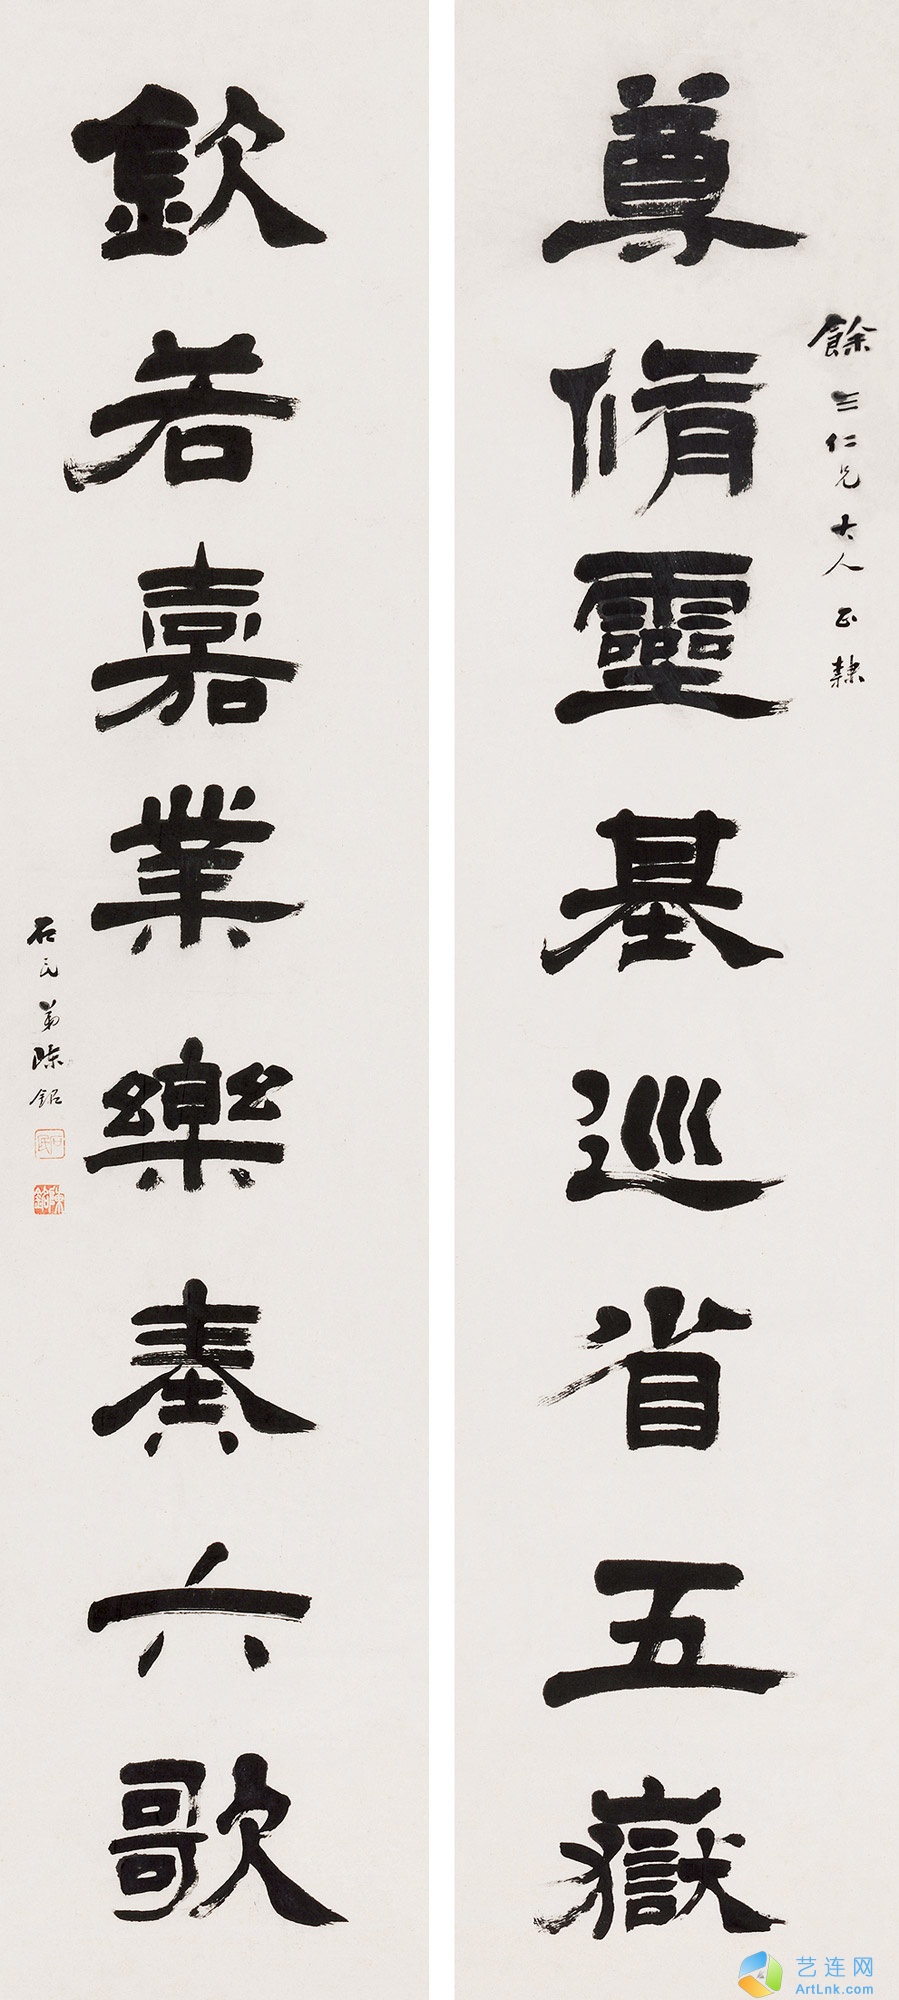 餘三仁兄大人正隸
尊脩靈基巡省五嶽
欽若嘉業樂奏六歌
石民弟陳鉊
石民
艺连网
ArtLnk.com